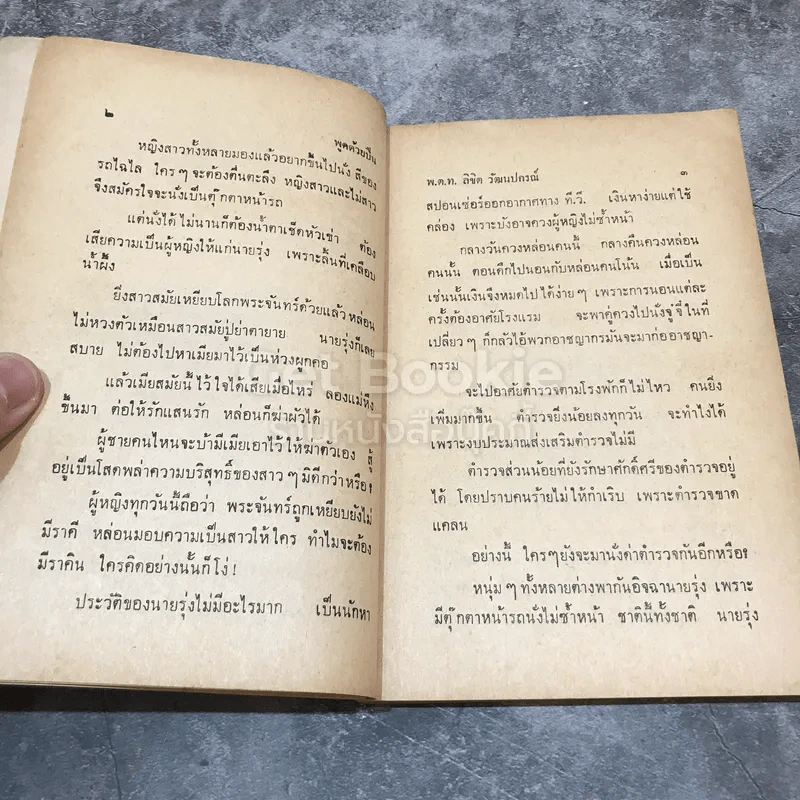 ๒
พูดด้วยปืน
หญิงสาวทั้งหลายมองแล้วอยากขึ้นไปนั่ง สีของ
รถไฉไล ใครๆ จะต้องตื่นตะลึง หญิงสาวและไม่สาว
จึงสมัครใจจะนั่งเป็นตุ๊กตาหน้ารถ
แต่นั่งได้ไม่นานก็ต้องน้ำตาเช็ดหัวเข่า ต้อง
เสียความเป็นผู้หญิงให้แก่นายรุ่ง เพราะลิ้นที่เคลือบ
น้ำผึ้ง
ยิ่งสาวสมัยเหยียบโลกพระจันทร์ด้วยแล้ว หล่อน
ไม่หวงตัวเหมือนสาวสมัยปู่ย่าตายาย นายรุ่งก็เลย
สบาย ไม่ต้องไปหาเมียมาไว้เป็นห่วงผูกคอ
แล้วเมียสมัยนี้ไว้ใจได้เสียเมื่อไหร่ ลองแม่หึง
ขึ้นมา ต่อให้รักแสนรัก หล่อนก็ฆ่าผัวได้
ผู้ชายคนไหนจะบ้ามีเมียเอาไว้ให้ฆ่าตัวเอง สู้
อยู่เป็นโสดพล่าความบริสุทธิ์ของสาวๆ มิดีกว่าหรือ!
ผู้หญิงทุกวันนี้ถือว่า พระจันทร์ถูกเหยียบยังไม่
มีราคี หล่อนมอบความเป็นสาวให้ใคร ทำไมจะต้อง
มีราคิน ใครคิดอย่างนั้นก็โง่!
ประวัติของนายรุ่งไม่มีอะไรมาก เป็นนักหา
พ.ต.ท. ลิขิต วัฒนปกรณ์
๓
สปอนเซ่อร์ออกอากาศทาง ที.วี. เงินหาง่ายแต่ใช้
คล่อง เพราะบังอาจควงผู้หญิงไม่ซ้ำหน้า
กลางวันควงหล่อนคนนี้ กลางคืนควงหล่อน
คนนั้น ตอนดึกไปนอนกับหล่อนคนโน้น เมื่อเป็น
เช่นนั้นเงินจึงหมดไปได้ง่ายๆ เพราะการนอนแต่ละ
ครั้งต้องอาศัยโรงแรม จะพาคู่ควงไปนั่งจู๋จี๋ในที่
เปลี่ยวๆ ก็กลัวไอ้พวกอาชญากรมันจะมาก่ออาชญา-
กรรม
จะไปอาศัยตำรวจตามโรงพักก็ไม่ไหว คนยิ่ง
เพิ่มมากขึ้น ตำรวจยิ่งน้อยลงทุกวัน จะทำไงได้
เพราะงบประมาณส่งเสริมตำรวจไม่มี
ตำรวจส่วนน้อยที่ยังรักษาศักดิ์ศรีของตำรวจอยู่
ได้ โดยปราบคนร้ายไม่ให้กำเริบ เพราะตำรวจขาด
แคลน
อย่างนี้ ใครๆ ยังจะมานั่งด่าตำรวจกันอีกหรือ!
หนุ่มๆ ทั้งหลายต่างพากันอิจฉานายรุ่ง เพราะ
มีตุ๊กตาหน้ารถนั่งไม่ซ้ำหน้า ชาตินี้ทั้งชาติ นายรุ่ง
Get Bookie